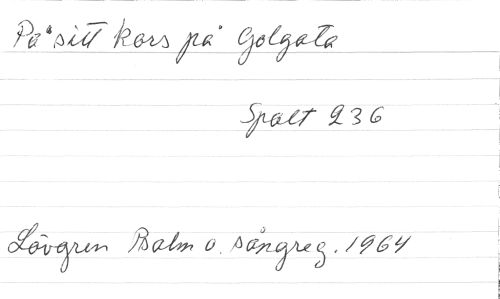 På sitt kors på Golgata
Spalt 236
Lövgren Psalm o. sångreg. 1964